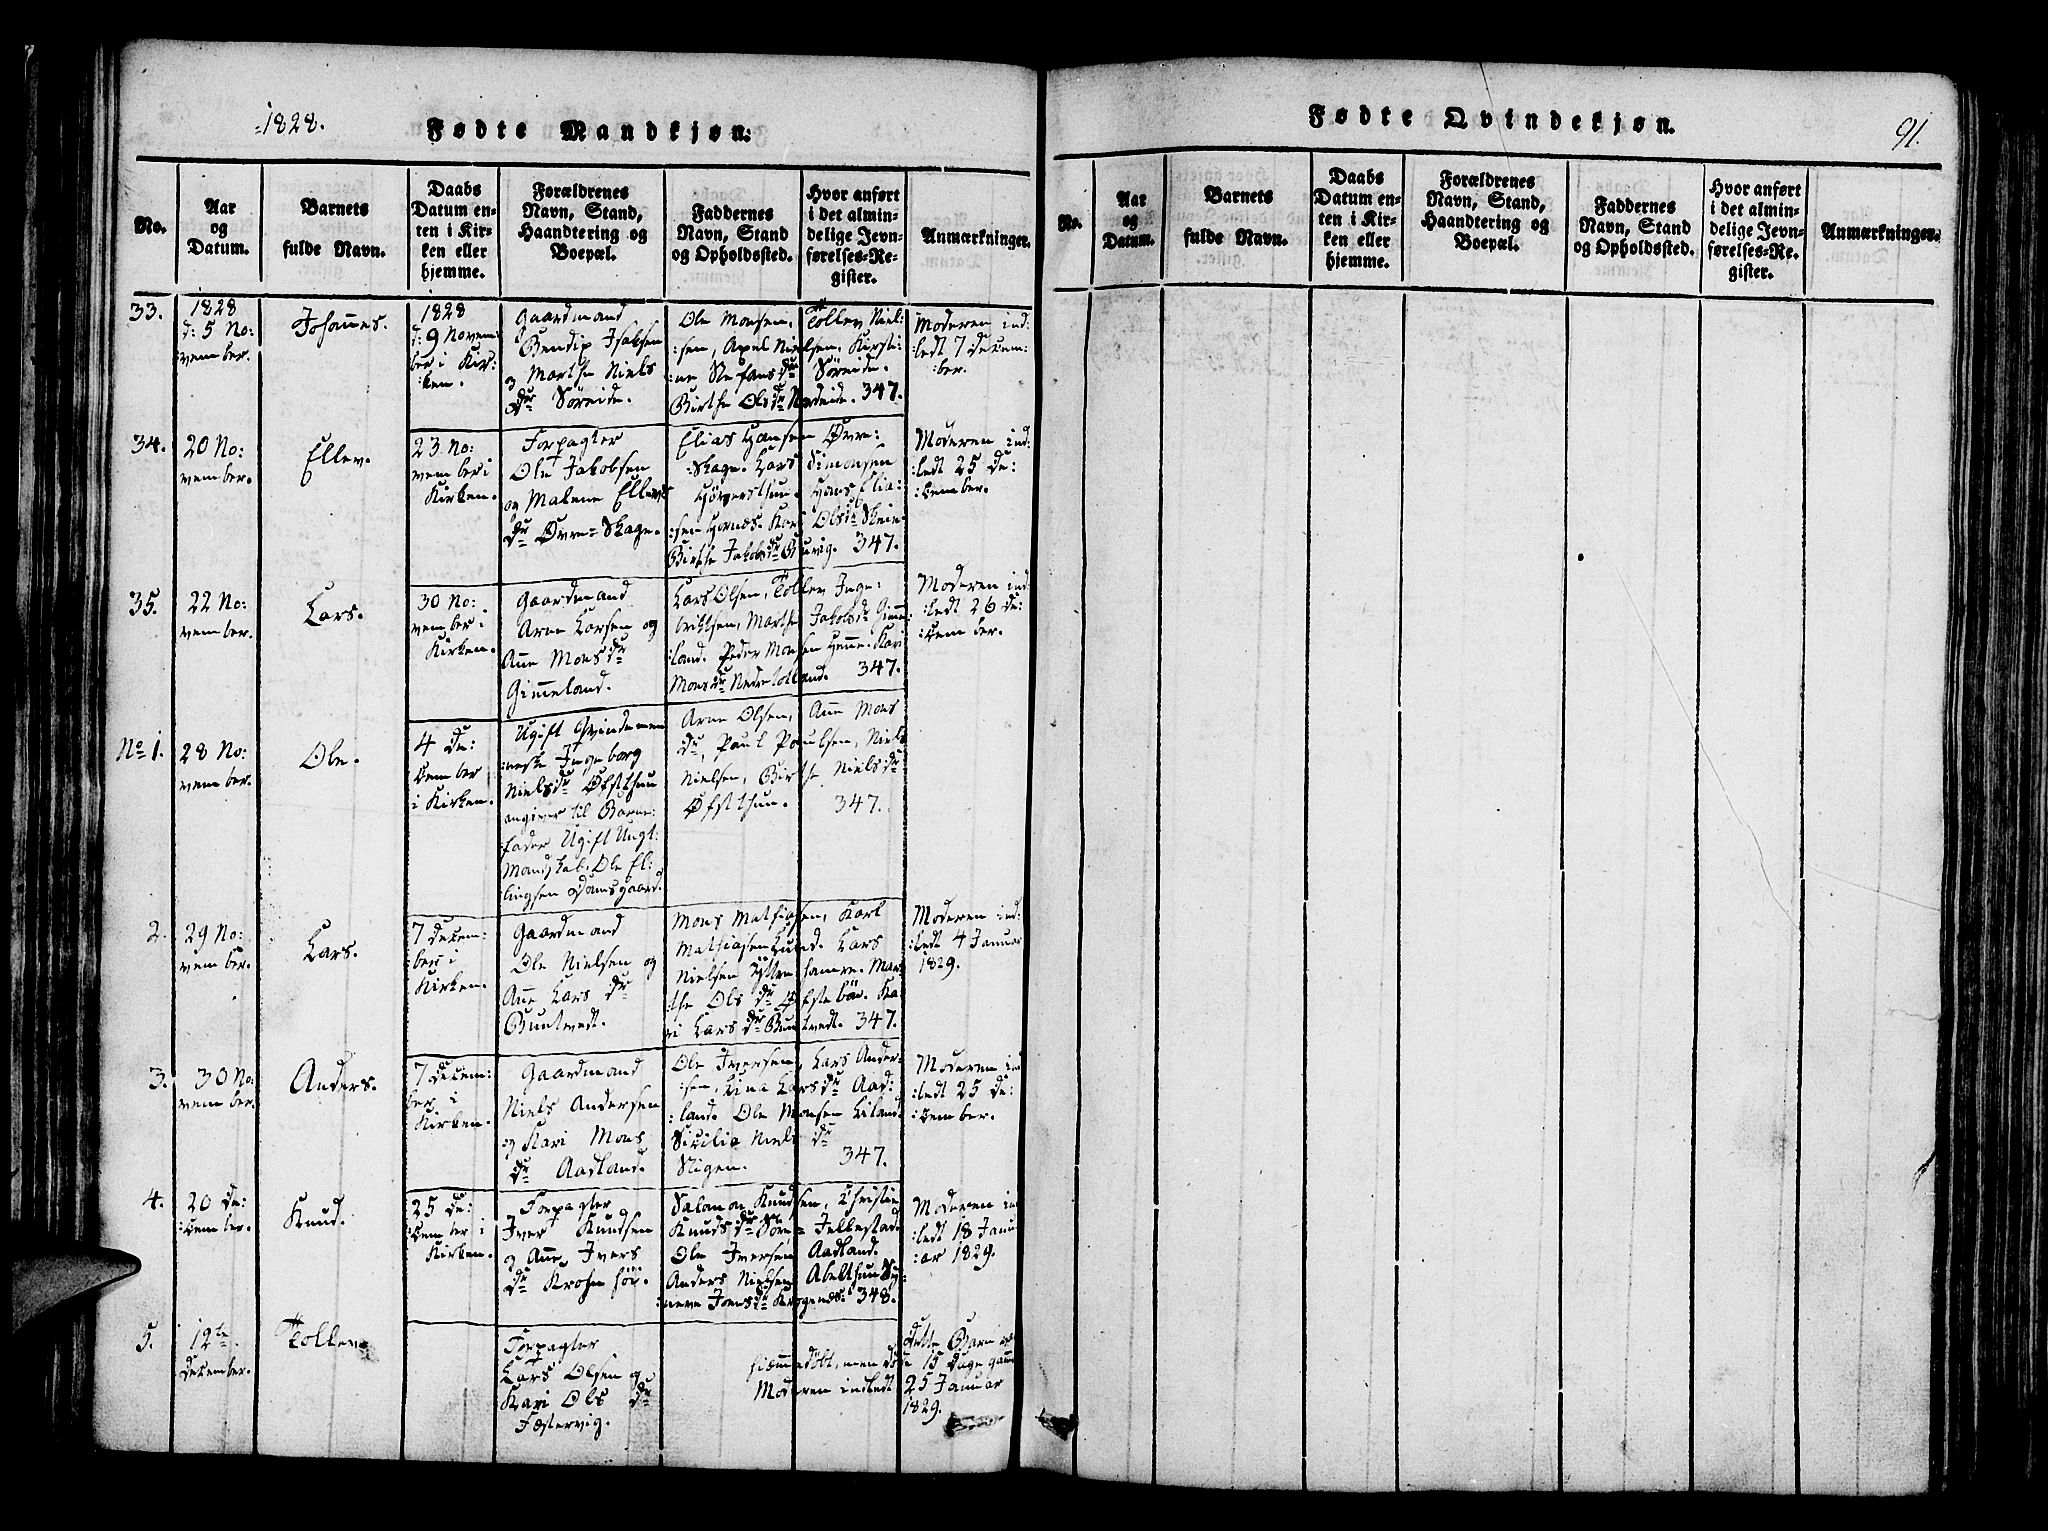 1828.
Fødte Mandkjøn.
No.
Aar
og
Datum.
Barnets
fulde Navn.
Daabs
Datum en-
ten i Kir-
ken eller
hjemme.
Forældrenes
Navn, Stand,
Haandtering og
Boepæl.
Faddernes
Navn, Stand
og Opholdssted.
Hvor anført
i det almin-
delige Jevn-
førelses-Re-
gister.
Anmærkninger.
33.
1828
d: 5 No:
vember.
Johannes.
1828
d: 9 Novem:
ber i Kir:
:ken.
Gaardmand
Bendix Isaksen
og Marthe Niels
du Søreide.
Ole Monsen, Tollev Niel:
:sen, Axel Nielsen, Kirsti:
:ne Stefansdu Søreide.
Birthe Olsdu Nordeide. 347.
Moderen ind:
:ledt 7 Decem:
:ber.
34.
20 No:
vember.
Ellev.
23 No:
vember i
Kirken.
Forpagter
Ole Jakobsen
og Malene Ellevs
du Øvre-Skage.
Elias Hansen Øvre:
:Skage. Lars Simonsen
Hans Elia:
:sen
Birthe Jakobsdu 347.
Moderen ind:
:ledt 25 De:
:cember.
35.
22 No:
vember.
Lars.
30 No:
vember i
Kirken.
Gaardmand
Arne Larsen og
Anne Monsdu
Gimeland.
Lars Olsen, Tollev Inge:
briktsen, Marthe Jakobsdu Gime:
:land. Peder Monsen Kari
Monsdu 347.
Moderen ind:
:ledt 26 De:
:cember.
No 1.
28 No:
vember.
Ole.
4 De:
cember
i Kirken.
Ugift Qvindemen
:neske Ingeborg
Nielsdu Øfstthun
angiver til Barne:
fader Ugift Ungt:
Mandskab: Ole El:
lingsen Damsgaard.
Arne Olsen, Anne Mons
du, Paul Paulsen, Niels
Nielsen, Birthe Nielsdu
Øfstthun. 347.
2.
29 No:
vember.
Lars.
7 Decem:
ber i
Kirken.
Gaardmand
Ole Nielsen og
Anne Lars du
Buntvedt.
Mons Mathiasen, Karl
Mathiasen Lund. Lars
Nielsen Yttrehamre. Mar:
:the Ols du Øfstebøe. Ka:
ri Lars du Buntvedt. 347.
Moderen ind:
:ledt 4 Januar
1829.
3.
30 No:
vember.
Anders.
7 Decem:
ber i
Kirken.
Gaardmand
Niels Andersen
og Kari Mons
du Aadland.
Ole Iversen, Lars Ander:
:sen, Lina Larsdu Aad:
:land. Ole Monsen
Sicilia Niels du
347.
Moderen ind
:ledt 25 De:
:cember.
4.
20 De:
:cember.
Knud.
25 De:
:cember i
Kirken.
Forpagter
Iver Knudsen
og Anne Ivers
du
Salamon Knudsen, Christie
Knudsdu Søre-Jellestad.
Ole Iversen Aadland.
Anders Nielsen
348.
Moderen in
:ledt 18 Janu
:ar 1829.
5.
12te
December.
Tollev
Forpagter
Lars Olsen og
Kari Ols du
Fæstervig.
hiemmedøbt, men
Moderen indledt
Dette Barn
15 Dage gam
25 Januar
1829.
Fødte Qvindekjøn.
91.
No.
Aar
og
Datum.
Barnets
fulde Navn.
Daabs
Datum en-
ten i Kir-
ken eller
hjemme.
Forældrenes
Navn, Stand,
Haandtering og
Boepæl.
Faddernes
Navn, Stand
og Opholdssted.
Hvor anført
i det almin-
delige Jevn-
førelses-Re-
gister.
Anmærkninger.